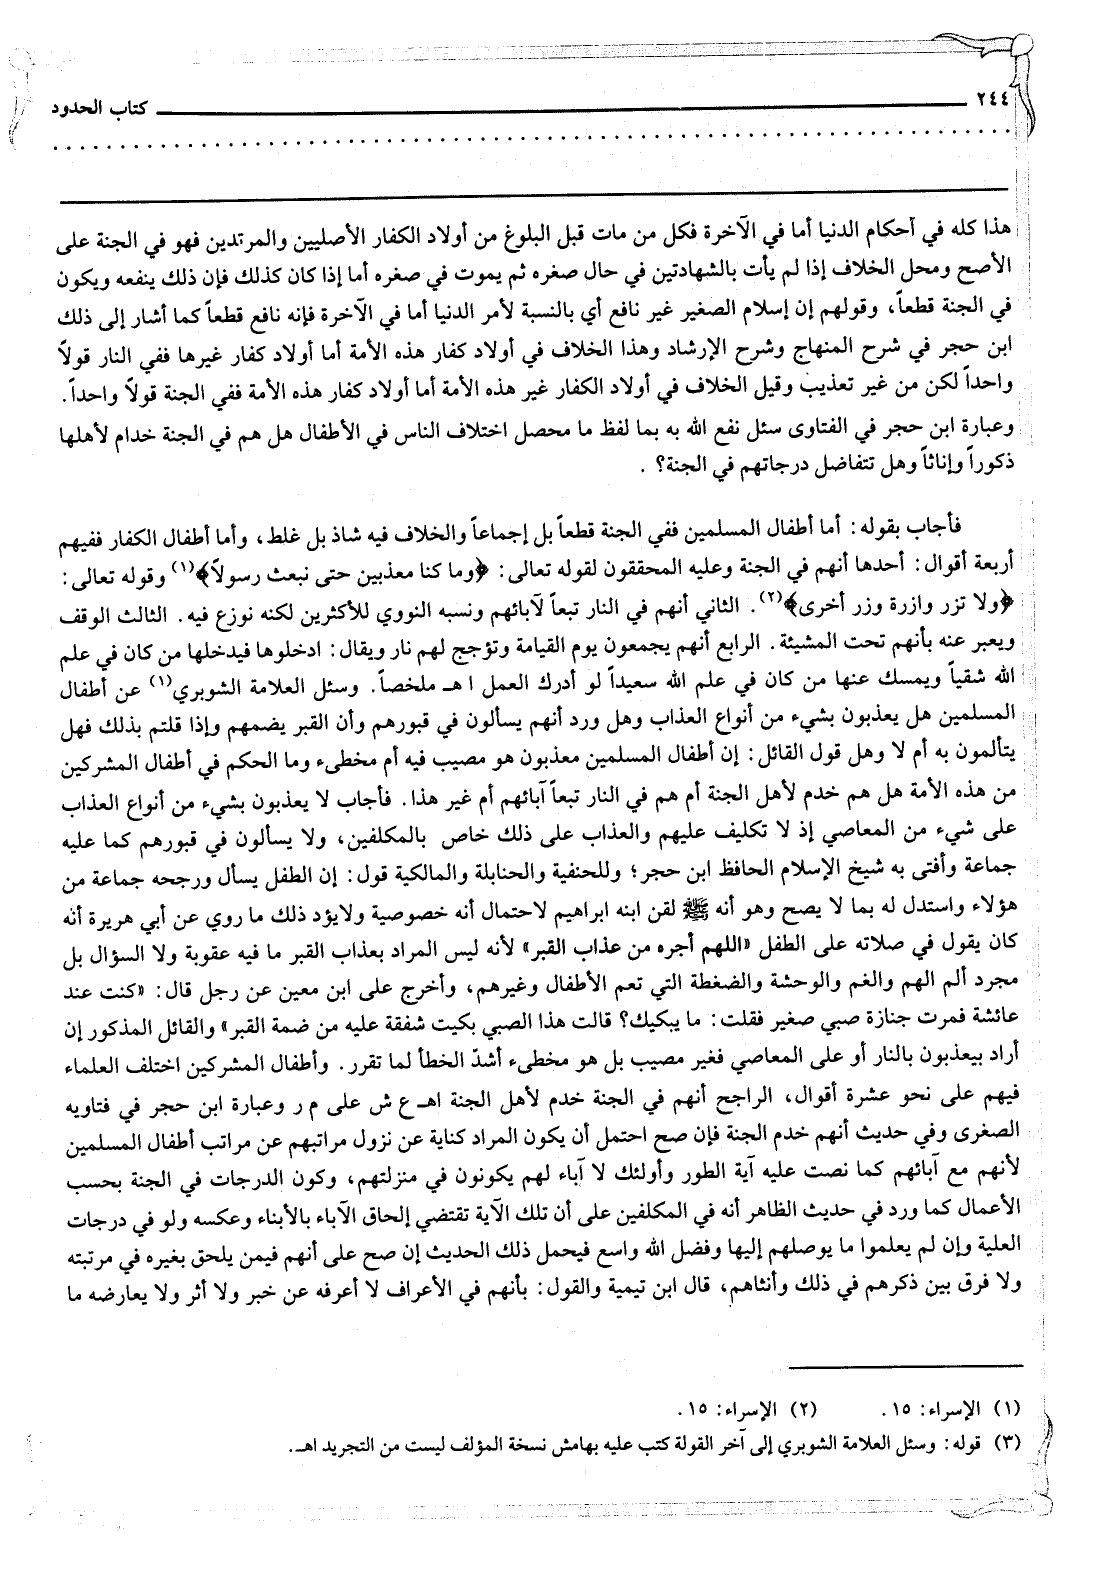 ٢٤٤ كتاب الحدود
هذا كله في أحكام الدنيا أما في الآخرة فكل من مات قبل البلوغ من أولاد الكفار الأصليين والمرتدين فهو في الجنة على
الأصح ومحل الخلاف إذا لم يأت بالشهادتين في حال صغره ثم يموت في صغره أما إذا كان كذلك فإن ذلك ينفعه ويكون
في الجنة قطعاً، وقولهم إن إسلام الصغير غير نافع أي بالنسبة لأمر الدنيا أما في الآخرة فإنه نافع قطعاً كما أشار إلى ذلك
ابن حجر في شرح المنهاج وشرح الإرشاد وهذا الخلاف في أولاد كفار هذه الأمة أما أولاد كفار غيرها ففي النار قولاً
واحداً لكن من غير تعذيب وقيل الخلاف في أولاد الكفار غير هذه الأمة أما أولاد كفار هذه الأمة ففي الجنة قولاً واحداً.
وعبارة ابن حجر في الفتاوى سئل نفع الله به بما لفظ ما محصل اختلاف الناس في الأطفال هل هم في الجنة خدام لأهلها
ذكوراً وإناثاً وهل تتفاضل درجاتهم في الجنة؟ .
فأجاب بقوله: أما أطفال المسلمين ففي الجنة قطعاً بل إجماعاً والخلاف فيه شاذ بل غلط، وأما أطفال الكفار ففيهم
أربعة أقوال: أحدها أنهم في الجنة وعليه المحققون لقوله تعالى: ﴿وما كنا معذبين حتى نبعث رسولاً﴾(١) وقوله تعالى:
﴿ولا تزر وازرة وزر أخرى﴾(٢). الثاني أنهم في النار تبعاً لآبائهم ونسبه النووي للأكثرين لكنه نوزع فيه. الثالث الوقف
ويعبر عنه بأنهم تحت المشيئة. الرابع أنهم يجمعون يوم القيامة وتؤجج لهم نار ويقال: ادخلوها فيدخلها من كان في علم
الله شقياً ويمسك عنها من كان في علم الله سعيداً لو أدرك العمل ا هـ ملخصاً. وسئل العلامة الشوبري(١) عن أطفال
المسلمين هل يعذبون بشيء من أنواع العذاب وهل ورد أنهم يسألون في قبورهم وأن القبر يضمهم وإذا قلتم بذلك فهل
يتألمون به أم لا وهل قول القائل: إن أطفال المسلمين معذبون هو مصيب فيه أم مخطىء وما الحكم في أطفال المشركين
من هذه الأمة هل هم خدم لأهل الجنة أم هم في النار تبعاً آبائهم أم غير هذا. فأجاب لا يعذبون بشيء من أنواع العذاب
على شيء من المعاصي إذ لا تكليف عليهم والعذاب على ذلك خاص بالمكلفين، ولا يسألون في قبورهم كما عليه
جماعة وأفتى به شيخ الإسلام الحافظ ابن حجر؛ وللحنفية والحنابلة والمالكية قول: إن الطفل يسأل ورجحه جماعة من
هؤلاء واستدل له بما لا يصح وهو أنه ﷺ لقن ابنه ابراهيم لاحتمال أنه خصوصية ولايؤد ذلك ما روي عن أبي هريرة أنه
كان يقول في صلاته على الطفل «اللهم أجره من عذاب القبر» لأنه ليس المراد بعذاب القبر ما فيه عقوبة ولا السؤال بل
مجرد ألم الهم والغم والوحشة والضغطة التي تعم الأطفال وغيرهم، وأخرج على ابن معين عن رجل قال: «كنت عند
عائشة فمرت جنازة صبي صغير فقلت: ما يبكيك؟ قالت هذا الصبي بكيت شفقة عليه من ضمة القبر» والقائل المذكور إن
أراد بيعذبون بالنار أو على المعاصي فغير مصيب بل هو مخطىء أشدّ الخطأ لما تقرر. وأطفال المشركين اختلف العلماء
فيهم على نحو عشرة أقوال، الراجح أنهم في الجنة خدم لأهل الجنة اهـ ع ش على م ر وعبارة ابن حجر في فتاويه
الصغرى وفي حديث أنهم خدم الجنة فإن صح احتمل أن يكون المراد كناية عن نزول مراتبهم عن مراتب أطفال المسلمين
لأنهم مع آبائهم كما نصت عليه آية الطور وأولئك لا آباء لهم يكونون في منزلتهم، وكون الدرجات في الجنة بحسب
الأعمال كما ورد في حديث الظاهر أنه في المكلفين على أن تلك الآية تقتضي إلحاق الآباء بالأبناء وعكسه ولو في درجات
العلية وإن لم يعلموا ما يوصلهم إليها وفضل الله واسع فيحمل ذلك الحديث إن صح على أنهم فيمن يلحق بغيره في مرتبته
ولا فرق بين ذكرهم في ذلك وأنثاهم، قال ابن تيمية والقول: بأنهم في الأعراف لا أعرفه عن خبر ولا أثر ولا يعارضه ما
(١) الإسراء: ١٥. (٢) الإسراء: ١٥.
(٣) قوله: وسئل العلامة الشوبري إلى آخر القولة كتب عليه بهامش نسخة المؤلف ليست من التجريد اهـ.